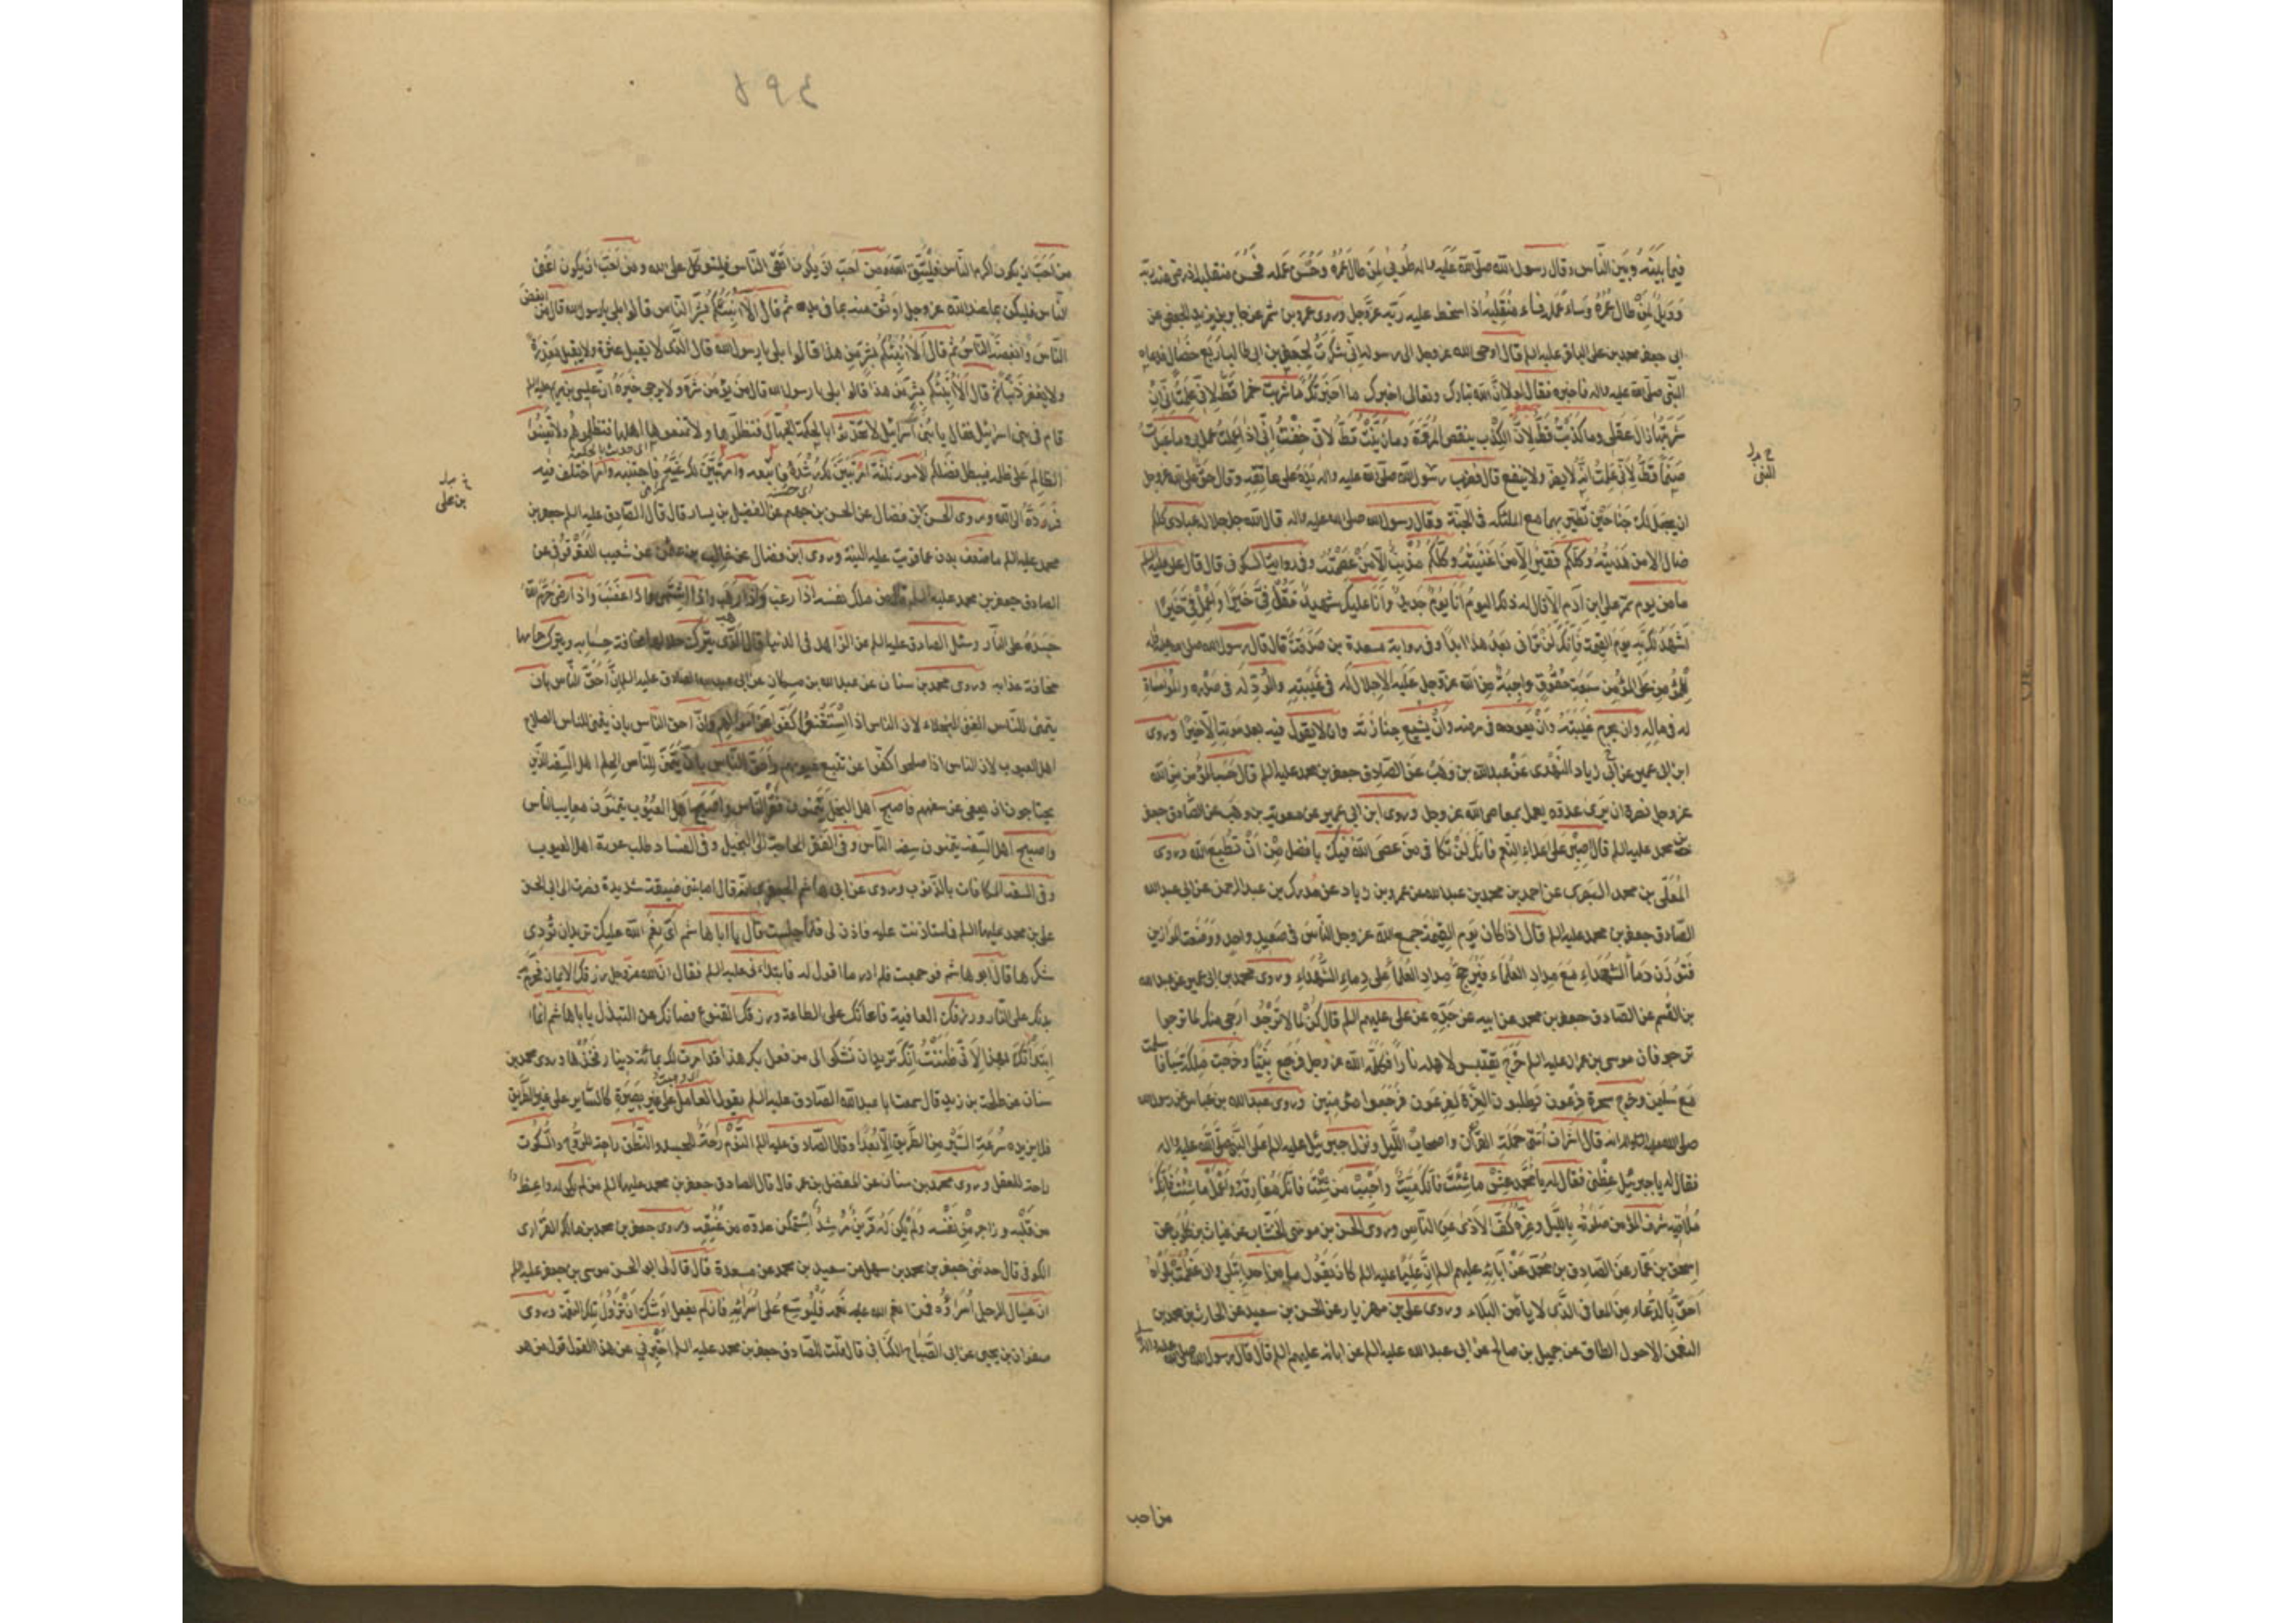 فيما بينه وبين الناس وقال رسول الله صلى الله عليه واله طوبى لمن طال عمره وحسن عمله فحسن منقلبه اذ رضى عنه ربه
وويل لمن طال عمره وساء عمله فساء منقلبه اذ اسخط عليه ربه عز وجل وروى عمرو بن شمر عن جابر بن يزيد الجعفى عن
ابى جعفر محمد بن على الباقر عليه السلم قال اوحى الله عز وجل الى رسوله انى شكرت لجعفر بن ابى طالب اربع خصال فدعاه
النبى صلى الله عليه واله فاخبره فقال لولا ان الله تبارك وتعالى اخبرك ما اخبرتك ما شربت خمرا قط لانى علمت انى ان
شربتها زال عقلى وما كذبت قط لان الكذب ينقص المروة وما زنيت قط لانى خفت انى اذا عملت عمل بى وما عبدت
صنما قط لانى علمت انه لا يضر ولا ينفع قال فضرب رسول الله صلى الله عليه واله يده على عاتقه وقال حق على الله عز وجل
ان يجعل لك جناحين تطير بهما مع الملئكة فى الجنة وقال رسول الله صلى الله عليه واله قال الله جل جلاله عبادى كلكم
ضال الا من هديته وكلكم فقير الا من اغنيته وكلكم مذنب الا من عصمته وفى رواية السكونى قال قال على عليه السلم
ما من يوم يمر على ابن آدم الا قال له ذلك اليوم انا يوم جديد وانا عليك شهيد فقل فى خيرا واعمل فى خيرا
اشهد لك به يوم القيمة فانك لن ترانى بعد هذا ابدا وفى رواية مسعدة بن صدقة قال قال رسول الله صلى الله عليه واله
للمؤمن على المؤمن سبعة حقوق واجبة من الله عز وجل عليه الاجلال له فى غيبته والود له فى صدره والمواساة
له فى ماله وان يحرم غيبته وان يعوده فى مرضه وان يشيع جنازته وان لا يقول فيه بعد موته الا خيرا وروى
ابن ابى عمير عن ابى زياد النهدى عن عبدالله بن وهب عن الصادق جعفر بن محمد عليه السلم قال حسب المؤمن من الله
عز وجل نصرة ان يرى عدوه يعمل بمعاصى الله عز وجل وروى ابن ابى عمير عن معوية بن وهب عن الصادق جعفر
بن محمد عليه السلم قال اصبر على اعداء النعم فانك لن تكافى من عصى الله فيك بافضل من ان تطيع الله وروى
المعلى بن محمد البصرى عن احمد بن محمد بن عبدالله عن عمرو بن زياد عن مدرك بن عبد الرحمن عن ابى عبدالله
الصادق جعفر بن محمد عليه السلم قال اذا كان يوم القيمة جمع الله عز وجل الناس فى صعيد واحد ووضعت الموازين
فتوزن دماء الشهداء مع مداد العلماء فيرجح مداد العلماء على دماء الشهداء وروى محمد بن ابى عمير عن عبدالله
بن القسم عن الصادق جعفر بن محمد عن ابيه عن جده عن على عليهم السلم قال كن لما لا ترجوا ارجى منك لما ترجوا
ترجو فان موسى بن عمران عليه السلم خرج يقتبس لاهله نارا فكلمه الله عز وجل فرجع نبيا وخرجت ملكة سبا فاسلمت
مع سليمن وخرج سحرة فرعون يطلبون العزة لفرعون فرجعوا مؤمنين وروى عبدالله بن عباس عن رسول الله
صلى الله عليه واله انه قال اشراف امتى حملة القرآن واصحاب الليل ونزل جبرئيل عليه السلم على النبى صلى الله عليه واله
فقال له يا جبرئيل عظنى فقال له يا محمد عش ما شئت فانك ميت واحبب من شئت فانك مفارقه واعمل ما شئت فانك
ملاقيه شرف المؤمن صلوته بالليل وعزه كف الاذى عن الناس وروى الحسن بن موسى الخشاب عن غياث بن كلوب عن
اسحق بن عمار عن الصادق بن محمد عن آبائه عليهم السلم ان عليا عليه السلم كان يقول ما من احد ابتلى وان عظمت بلواه
احق بالدعاء من المعافى الذى لا يامن البلاء وروى على بن مهزيار عن الحسن بن سعيد عن الحارث بن محمد بن
النعمن الاحول الطاق عن جميل بن صالح عن ابى عبدالله عليه السلم عن ابائه عليهم السلم قال قال رسول الله صلى الله عليه واله
من احب
٤٩٨
من احب ان يكون اكرم الناس فليتق الله ومن احب ان يكون اتقى الناس فليتوكل على الله ومن احب ان يكون اغنى
الناس فليكن بما عند الله عز وجل اوثق منه بما فى يده ثم قال الا انبئكم بشر الناس قالوا بلى يا رسول الله قال من ابغض
الناس وابغضه الناس ثم قال الا انبئكم بشر من هذا قالوا بلى يا رسول الله قال الذى لا يقيل عثرة ولا يقبل معذرة
ولا يغفر ذنبا ثم قال الا انبئكم بشر من هذا قالوا بلى يا رسول الله قال من لا يؤمن شره ولا يرجى خيره ان عيسى بن مريم عليه السلم
قام فى بنى اسرائيل فقال يا بنى اسرائيل لا تحدثوا بالحكمة الجهال فتظلموها ولا تمنعوها اهلها فتظلموهم ولا تعينوا
الظالم على ظلمه فيبطل فضلكم الامور ثلثة امر تبين لك رشده فاتبعه وامر تبين لك غيه فاجتنبه وامر اختلف فيه
فرده الى الله وروى الحسن بن فضال عن الحسن بن جهم عن الفضيل بن يسار قال قال الصادق عليه السلم جعفر بن
بن على
محمد عليه السلم ما ضعف بدن عما قويت عليه النية وروى ابن فضال عن غالب بن عثمن عن شعيب العقرقوفى عن
الصادق جعفر بن محمد عليه السلم قال من ملك نفسه اذا رغب واذا رهب واذا اشتهى واذا غضب واذا رضى حرم الله
جسده على النار وسئل الصادق عليه السلم عن الزاهد فى الدنيا قال الذى يترك حلالها مخافة حسابه ويترك حرامها
مخافة عذابه وروى محمد بن سنان عن عبدالله بن مسكان عن ابى عبدالله الصادق عليه السلم ان احق الناس بان
يتمنى للناس الغنى البخلاء لان الناس اذا استغنوا كفوا عن اموالهم وان احق الناس بان يتمنى للناس الصلاح
اهل العيوب لان الناس اذا صلحوا كفوا عن تتبع عيوبهم واحق الناس بان يتمنى للناس الحلم اهل السفه الذين
يحتاجون ان يعفى عن سفههم فاصبح اهل البخل يتمنون فقر الناس واصبح اهل العيوب يتمنون معايب الناس
واصبح اهل السفه يتمنون سفه الناس وفى الفقر الحاجة الى البخيل وفى الفساد طلب عورة اهل العيوب
وفى السفه المكافات بالذنوب وروى عن ابى هاشم الجعفرى انه قال اصابتنى ضيقة شديدة فصرت الى ابى الحسن
على بن محمد عليهما السلم فاستاذنت عليه فاذن لى فلما جلست قال يا ابا هاشم اى نعم الله عليك تريد ان تؤدى
شكرها قال ابو هاشم فوجمت فلم ادر ما اقول له فابتدانى عليه السلم فقال ان الله عز وجل رزقك الايمان فحرم به
بدنك على النار ورزقك العافية فاعانك على الطاعة ورزقك القنوع فصانك عن التبذل يا ابا هاشم انما
ابتداتك بهذا لانى ظننت انك تريد ان تشكى الى من فعل بك هذا قد امرت لك بمائة دينار فخذها وروى محمد بن
سنان عن طلحة بن زيد قال سمعت ابا عبدالله الصادق عليه السلم يقول العامل على غير بصيرة كالسائر على غير الطريق
فلا يزيده سرعة السير من الطريق الا بعدا وقال الصادق عليه السلم النوم راحة للجسد والنطق راحة للروح والسكوت
راحة للعقل وروى محمد بن سنان عن المفضل بن عمر قال قال الصادق جعفر بن محمد عليهما السلم من لم يكن له واعظ
من قلبه وزاجر من نفسه ولم يكن له قرين مرشد استمكن عدوه من عنقه وروى جعفر بن محمد بن مالك الفزارى
الكوفى قال حدثنى جعفر بن محمد بن سهل عن سعيد بن محمد عن مسعدة قال قال لى ابو الحسن موسى بن جعفر عليه السلم
ان عيال الرجل اسراؤه فمن انعم الله عليه نعمة فليوسع على اسرائه فان لم يفعل اوشك ان تزول تلك النعمة وروى
صفوان بن يحيى عن ابى الصباح الكنانى قال قلت للصادق جعفر بن محمد عليه السلم اخبرنى عن هذا القول قول من هو